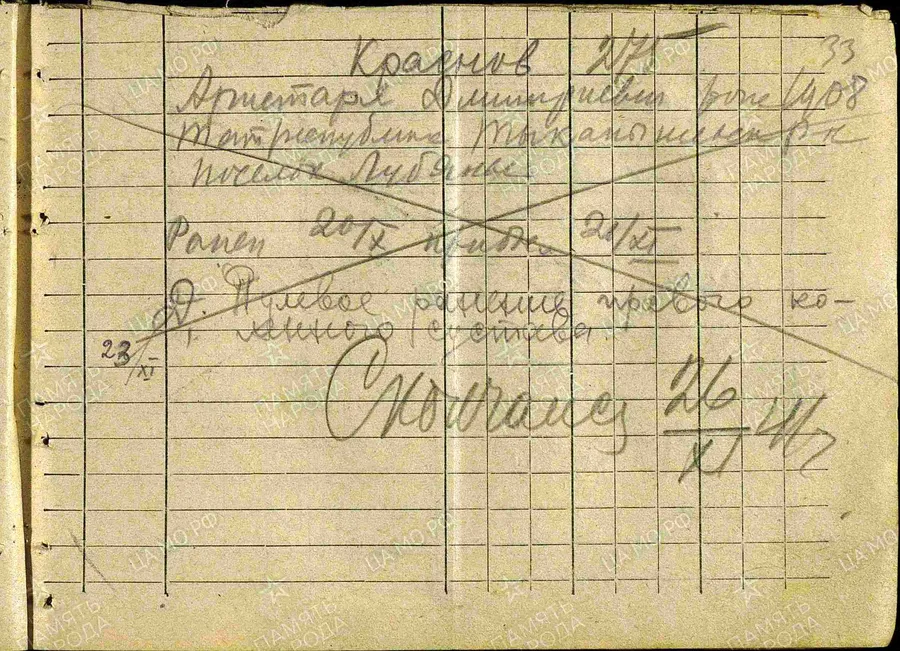 33
Краснов 275
Аристарх Дмитриевич рож 1908
Татреспублика
поселок Лубяны
Ранен 20/X прибыл 21/XI
D. Пулевое ранение правого ко-
ленного сустава.
23/XI
Скончался 26/XI 41 г
ПАМЯТЬ НАРОДА
ЦА МО РФ